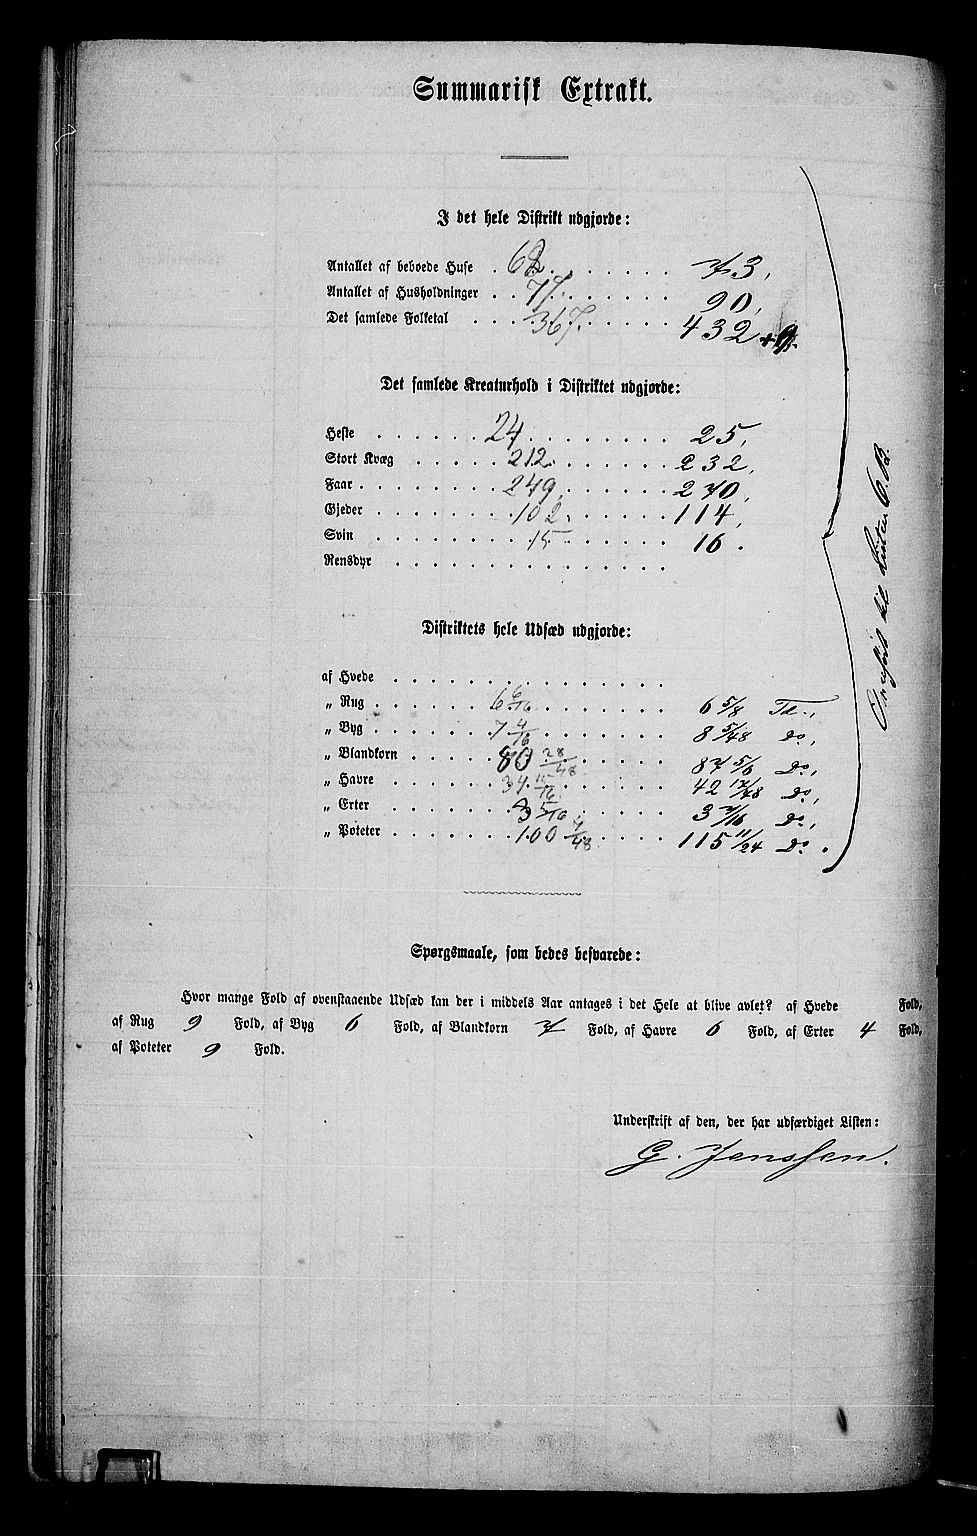 Summarisk Extrakt.
I det hele Distrikt udgjorde:
Antallet af beboede Huse . 62 . . . . . . 73.
Antallet af Husholdninger . . 77 . . . . . . 90.
Det samlede Folketal . . . 367 . . . . 432 + 9.
Det samlede Kreaturhold i Distriktet udgjorde:
Heste . . . . . . 24 . . . . . . . 25.
Stort Kvæg . . . . 212 . . . . . . 232.
Faar . . . . . . . 249 . . . . . . 270.
Gjeder . . . . . . 102 . . . . . . 114.
Svin . . . . . . . 15 . . . . . . 16.
Rensdyr . . . . . . . . . . . . . .
Distriktets hele Udsæd udgjorde:
af Hvede . . . . . . . . . . . . . .
„ Rug . . . . . . 6 6/16 . . . . . . 6 5/8 Td.,
„ Byg . . . . . . 7 4/16 . . . . . . 8 5/48 do,
„ Blandkorn . . . . 80 28/48 . . . . 87 5/6 Do,
„ Havre . . . . . 34 15/16 . . . . . 42 17/48 do,
„ Erter . . . . . . 3 5/16 . . . . . 3 7/16 do,
„ Poteter . . . . . . 100 4/48 . . . . 115 11/24 Do.
til Listen 6. B.
Spørgsmaale, som bedes besvarede:
Hvor mange Fold af ovenstaaende Udsæd kan der i middels Aar antages i det Hele at blive avlet? af Hvede Fold,
af Rug 9 Fold, af Byg 6 Fold, af Blandkorn 7 Fold, af Havre 6 Fold, af Erter 4 Fold,
af Poteter 9 Fold.
Underskrift af den, der har udfærdiget Listen:
G. Jenssen.